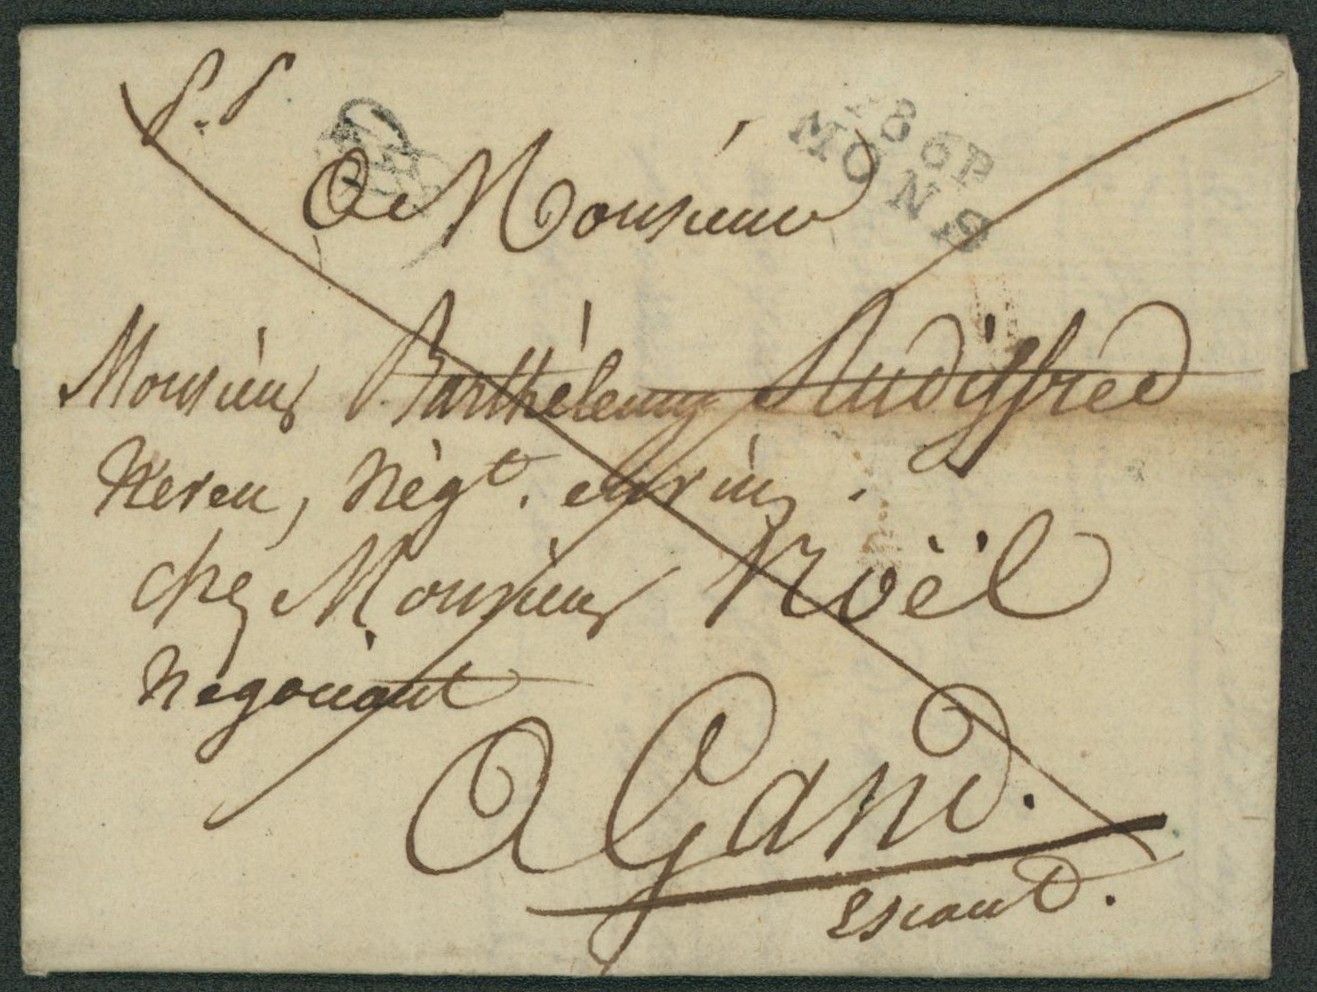 P. P.
P86P
MONS
A Monsieur
Monsieur Barthélemy Audiffred
Neveu, Négt.
chez Monsieur Noël
Negociant
A Gand.
Escaut.